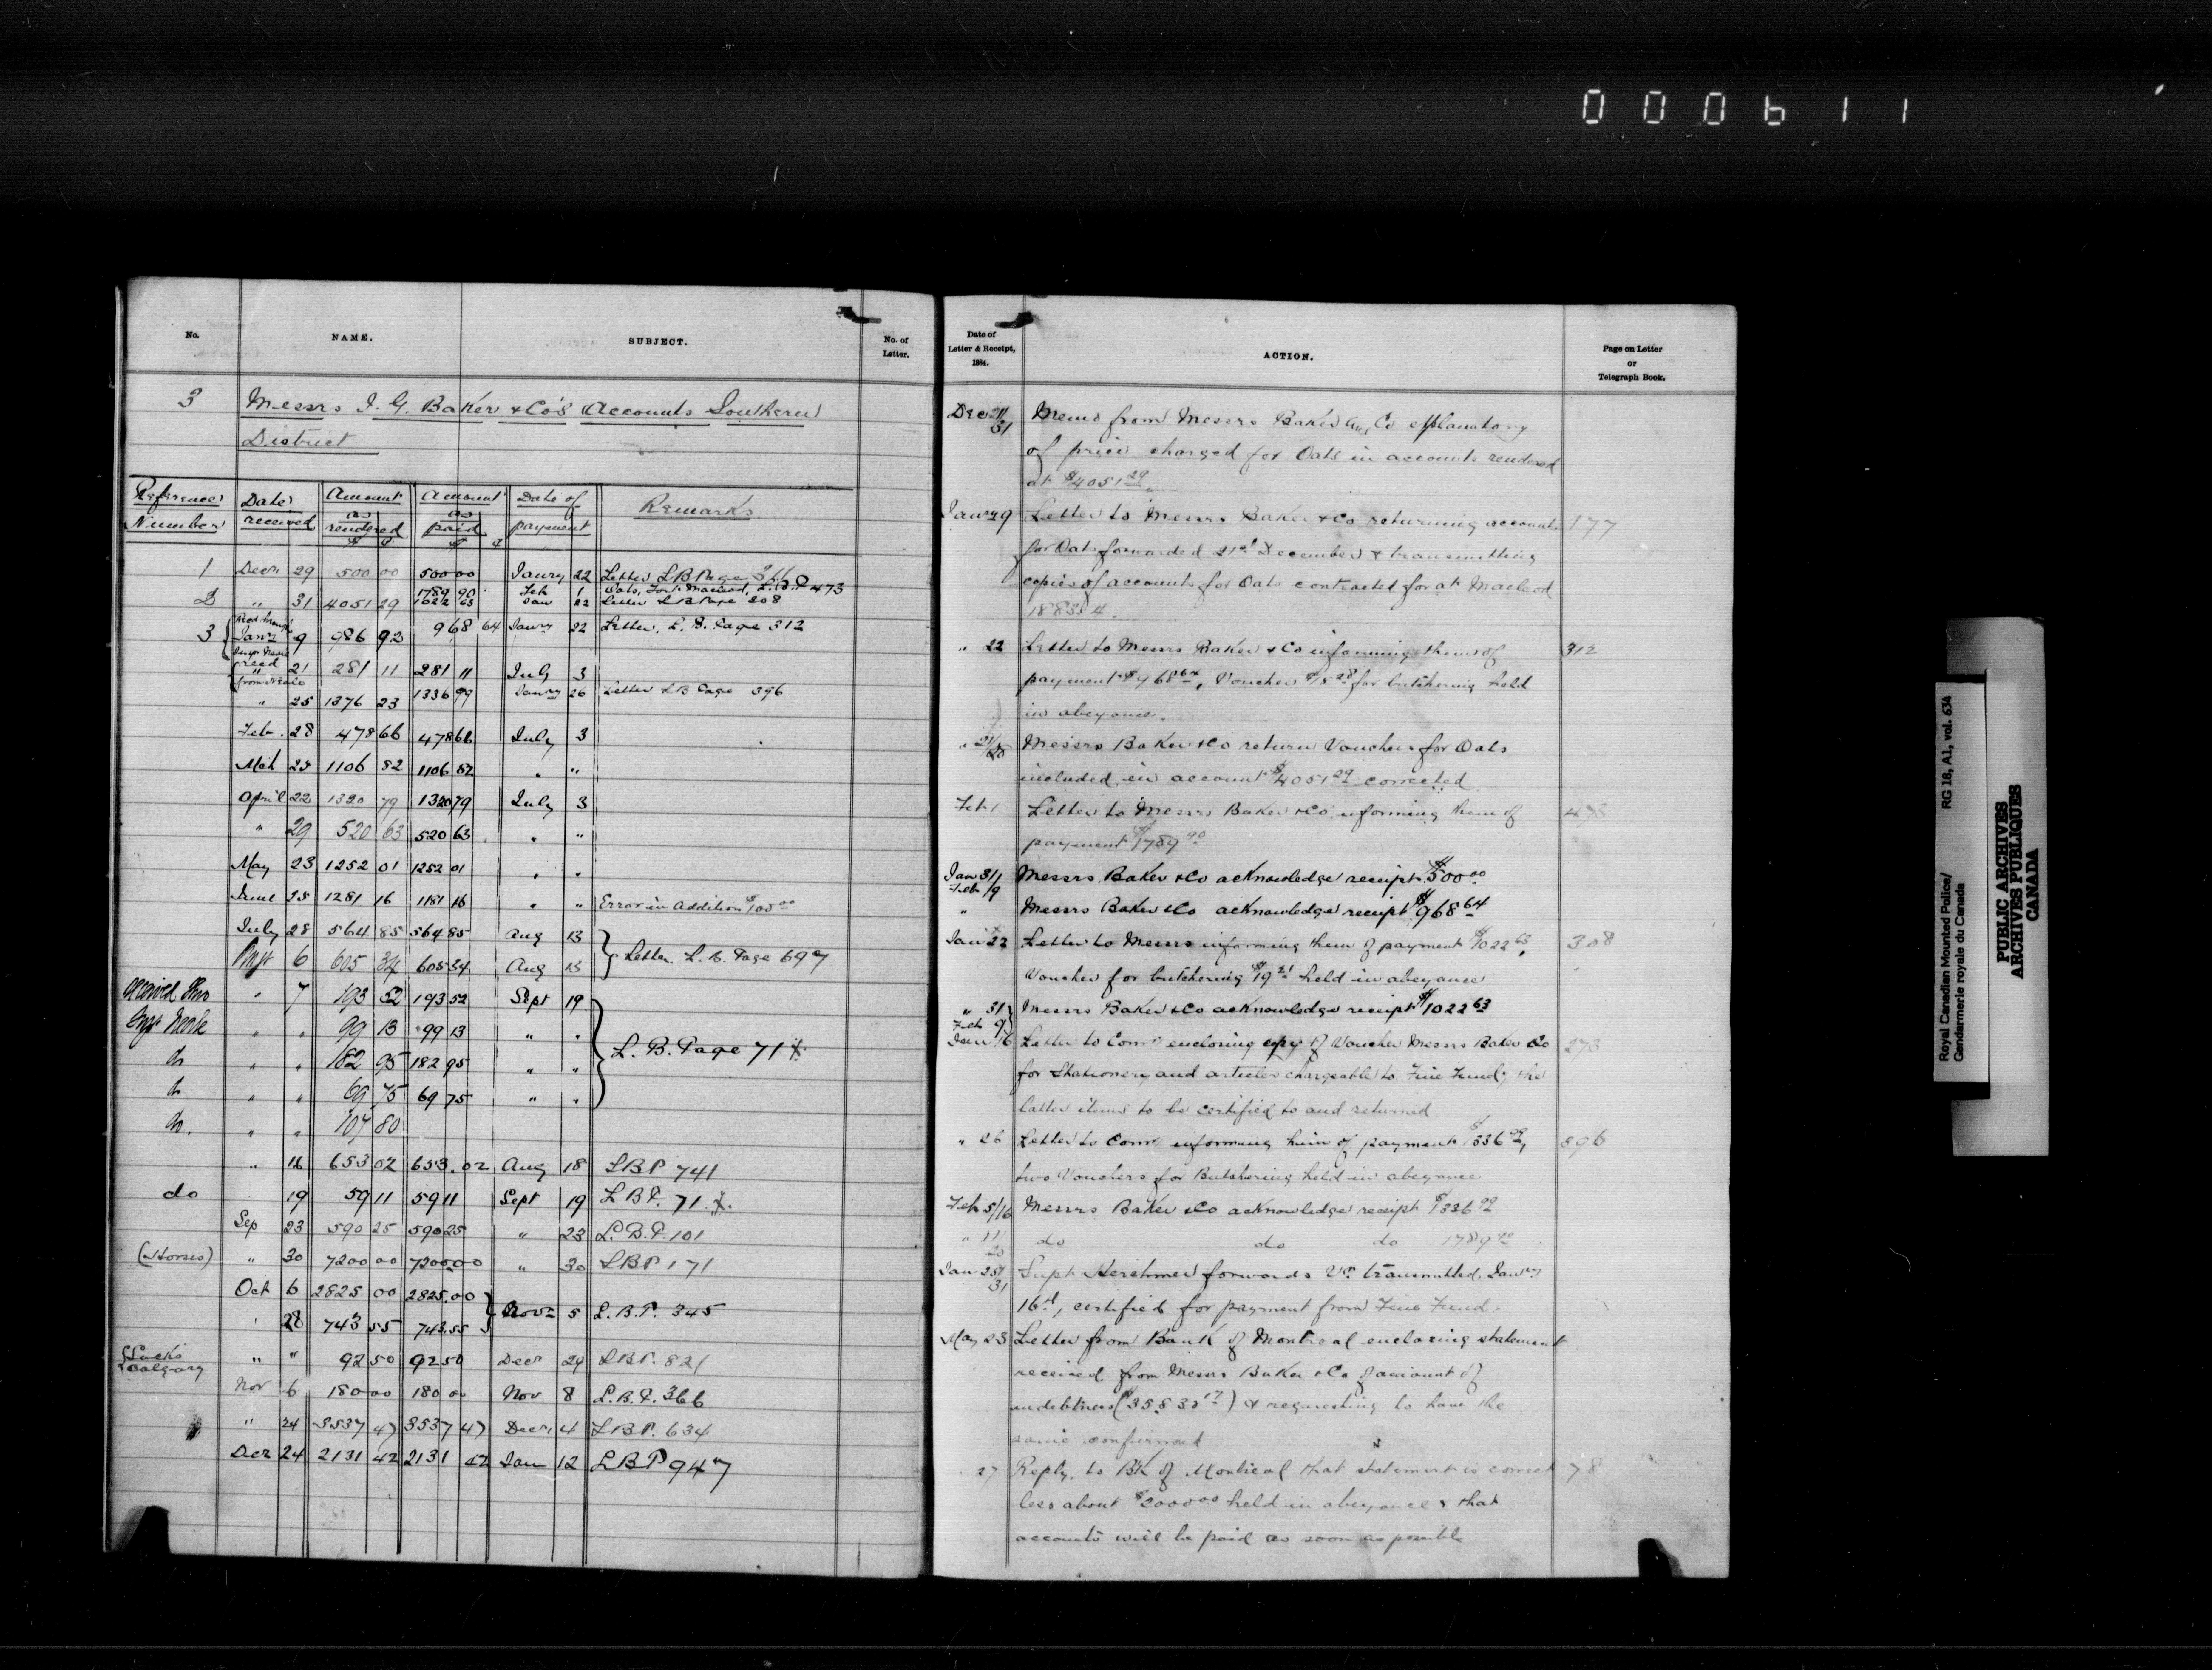 000611
No. NAME. SUBJECT. No. of Letter.
3 Messrs I. G. Baker & Co's Accounts Southern
District
Reference Number Date received Amount as rendered $ ¢ Amount as paid $ ¢ Date of payment Remarks
1 Decr 29 500 00 500 00 Janry 22 Letter LB Page
1789 90 Feb 1 Oats, Fort Macleod, L.B.P 473
2 " 31 4051 29 1022 63 Jan 22 Letter LB Page 308
3 Janr 9 986 92 968 64 Janry 22 Letter, L. B. Page 312
recd " 21 281 11 281 11 July 3
from Neale
" 25 1376 23 1336 99 Janry 26 Letter LB Page 396
Feb. 28 478 66 478 66 July 3
Mch 25 1106 82 1106 82 " "
April 22 1320 79 1320 79 July 3
" 29 520 63 520 63 " "
May 23 1252 01 1252 01 " "
June 25 1281 16 1181 16 " " Error in Addition $100 00
July 28 564 85 564 85 Aug 13
Letter L. B. Page 697
6 605 34 605 34 Aug 13
received thro " 7 193 52 193 52 Sept 19
Insp Neale " " 99 13 99 13 " "
L. B. Page 71
do " " 182 95 182 95 " "
do " " 69 75 69 75 " "
do. " " 107 80
" 16 653 02 653.02 Aug 18 LBP 741
do 19 59 11 59 11 Sept 19 L B P. 71
Sep 23 590 25 590 25 " 23 L. B. P. 101
(Horses) " 30 7200 00 7200 00 " 30 LBP 171
Oct 6 2825 00 2825.00
Novr 5 L. B. P. 345
" 28 743 55 743.55
Calgary " " 92 50 92 50 Decr 29 LBP. 821
Nov 6 180 00 180 00 Nov 8 L. B. P. 366
" 24 3537 47 3537 47 Decr 4 LBP. 634
Decr 24 2131 42 2131 42 Jan 12 LBP 947
Date of Letter & Receipt, 1884. ACTION. Page on Letter or Telegraph Book.
Dec 21/31 Memo from Messrs Baker and Co explanatory
of price charged for Oats in account rendered
at $4051 29
Janry 9 Letter to Messrs Baker & Co returning account 177
for Oats forwarded 21st December & transmitting
copies of accounts for Oats contracted for at Macleod
1883/4.
" 22 Letter to Messrs Baker & Co informing them of 312
payment $968 64, Voucher $18 28 for butchering held
in abeyance.
" 21/28 Messrs Baker & Co return Voucher for Oats
included in account $4051 29 corrected
Feb 1 Letter to Messrs Baker & Co informing them of 473
payment $1789 90
Jan 31/Feb 9 Messrs Baker & Co acknowledge receipt $500 00
" Messrs Baker & Co acknowledge receipt $968 64
Jan 22 Letter to Messrs informing them of payment $1022 63, 308
Voucher for butchering $19 21 held in abeyance
" 31 Feb 9 Messrs Baker & Co acknowledge receipt $1022 63
Jan 16 Letter to Comr enclosing copy of Voucher Messrs Baker & Co 273
for Stationery and articles chargeable to Fine Fund; the
latter items to be certified to and returned
" 26 Letter to Comr informing him of payment $1336 99, 396
two Vouchers for Butchering held in abeyance
Feb 5/16 Messrs Baker & Co acknowledge receipt $1336 99
" 11/20 do do do 1789 90
Jan 23/31 Supt Herchmer forwards Vr transmitted Janry
16th, certified for payment from Fine Fund.
May 23 Letter from Bank of Montreal enclosing statement
received from Messrs Baker & Co of amount of
indebtness & requesting to have the
same confirmed
27 Reply to Bk of Montreal that statement is correct 78
less about $2000 00 held in abeyance & that
accounts will be paid as soon as possible
Royal Canadian Mounted Police/ RG 18, A1, vol. 634
Gendarmerie royale du Canada
PUBLIC ARCHIVES
ARCHIVES PUBLIQUES
CANADA